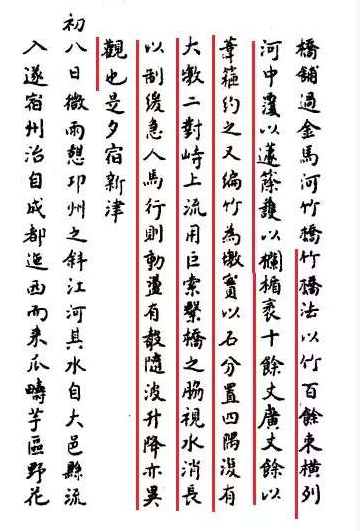 橋舖過金馬河竹橋竹橋法以竹百餘束橫列
河中覆以蘧篨護以欄楯袤十餘丈廣丈餘以
葦䉛約之又編竹為墩實以石分置四隅復有
大墩二對峙上流用巨索繫橋之脇視水消長
以制緩急人馬行則動盪有聲隨波升降亦異
觀也是夕宿新津
初八日微雨憩邛州之斜江河其水自大邑縣流
入遂宿州治自成都迤西而來瓜疇芋區野花